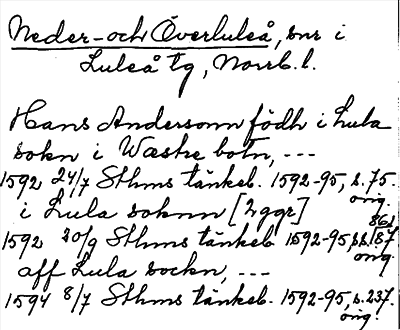 Neder- och Överluleå, snr i
Luleå tg, Norrb. l.
Hans Andersonn födh i Lula
sokn i Wastre botn, ---
1592 24/7 Sthms tänkeb. 1592-95, s. 75.
orig.
i Lula soknn [2ggr]
86,
1592 20/9 Sthms tänkeb 1592-95, ss. 187
orig.
aff Lula sockn, ---
1594 8/7 Sthms tänkeb. 1592-95, s. 237.
orig.